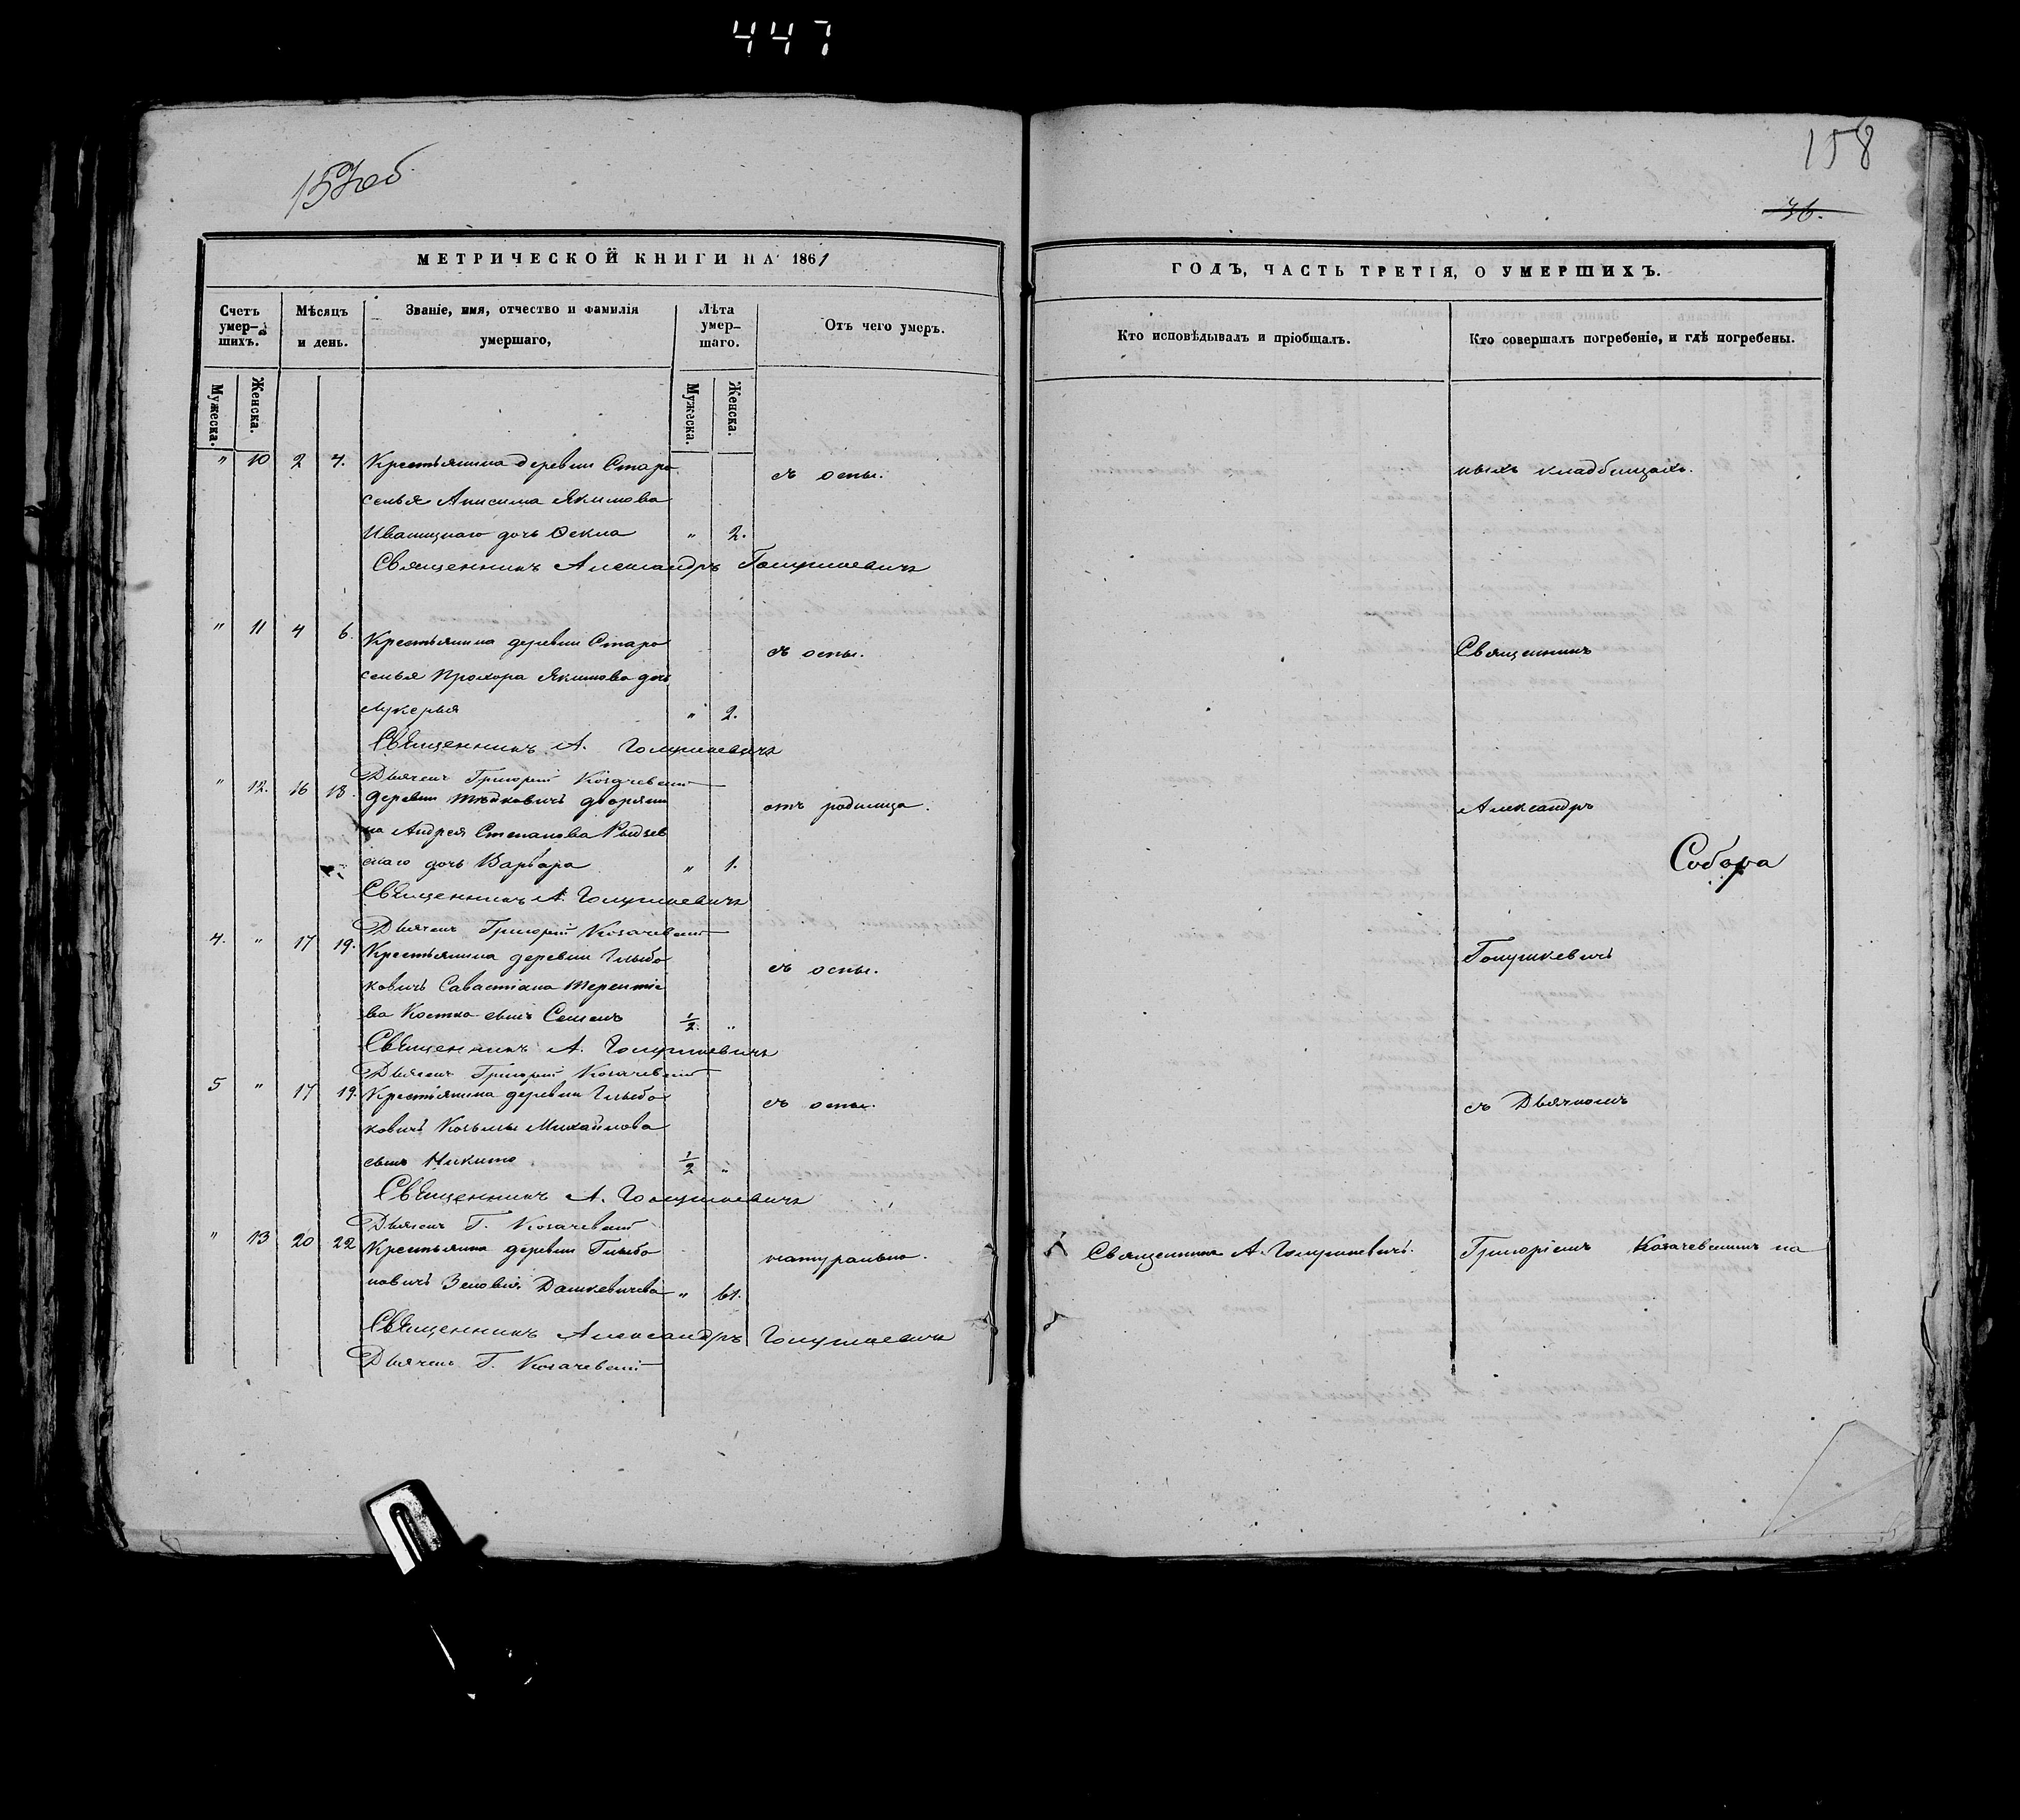 447
157об
158
36.
МЕТРИЧЕСКОЙ КНИГИ НА 1861
ГОДЪ, ЧАСТЬ ТРЕТІЯ, О УМЕРШИХЪ.
Счетъ умер-шихъ.
Мѣсяцъ и день.
Званіе, имя, отчество и фамилія умершаго,
Лѣта умер-шаго.
Отъ чего умеръ.
Кто исповѣдывалъ и пріобщалъ.
Кто совершалъ погребеніе, и гдѣ погребены.
Мужеска.
Женска.
Мужеска.
Женска.
" 10 2 4. Крестьянина деревни Старо съ оспы. ныхъ кладбищахъ.
селья Анисима Якимова
дочь Ѳекла " 2.
Священникъ Александръ Голушкевичъ
" 11 4 6. Крестьянина деревни Старо съ оспы. Священникъ
селья Прохора Якимова дочь
Лукерья " 2.
Священникъ А. Голушкевичъ
Дьячекъ Григорій Козачевскій
" 12. 16 18. деревни дворяни отъ родимца. Александръ
на Андрея Степанова
скаго дочь Варвара " 1.
Собора
Священникъ А. Голушкевичъ
Дьячекъ Григорій Козачевскій
4. " 17 19. Крестьянина деревни Глыбо съ оспы. Голушкевичъ
ковичъ Савастіана Терентіе
ва Костка сынъ Семенъ 1/2 "
Священникъ А. Голушкевичъ
Дьячекъ Григорій Козачевскій
5 " 17 19. Крестьянина деревни Глыбо съ оспы. съ Дьячкомъ
ковичъ Козьмы Михайлова
сынъ Никита 1/2 "
Священникъ А. Голушкевичъ
Дьячекъ Г. Козачевскій
" 13 20 22 Крестьянка деревни Глыбо натурально. Священникъ А. Голушкевичъ. Григоріемъ Козачевскимъ на
ковичъ Зеновія Дашкевичева " 61.
Священникъ Александръ Голушкевичъ
Дьячекъ Г. Козачевскій